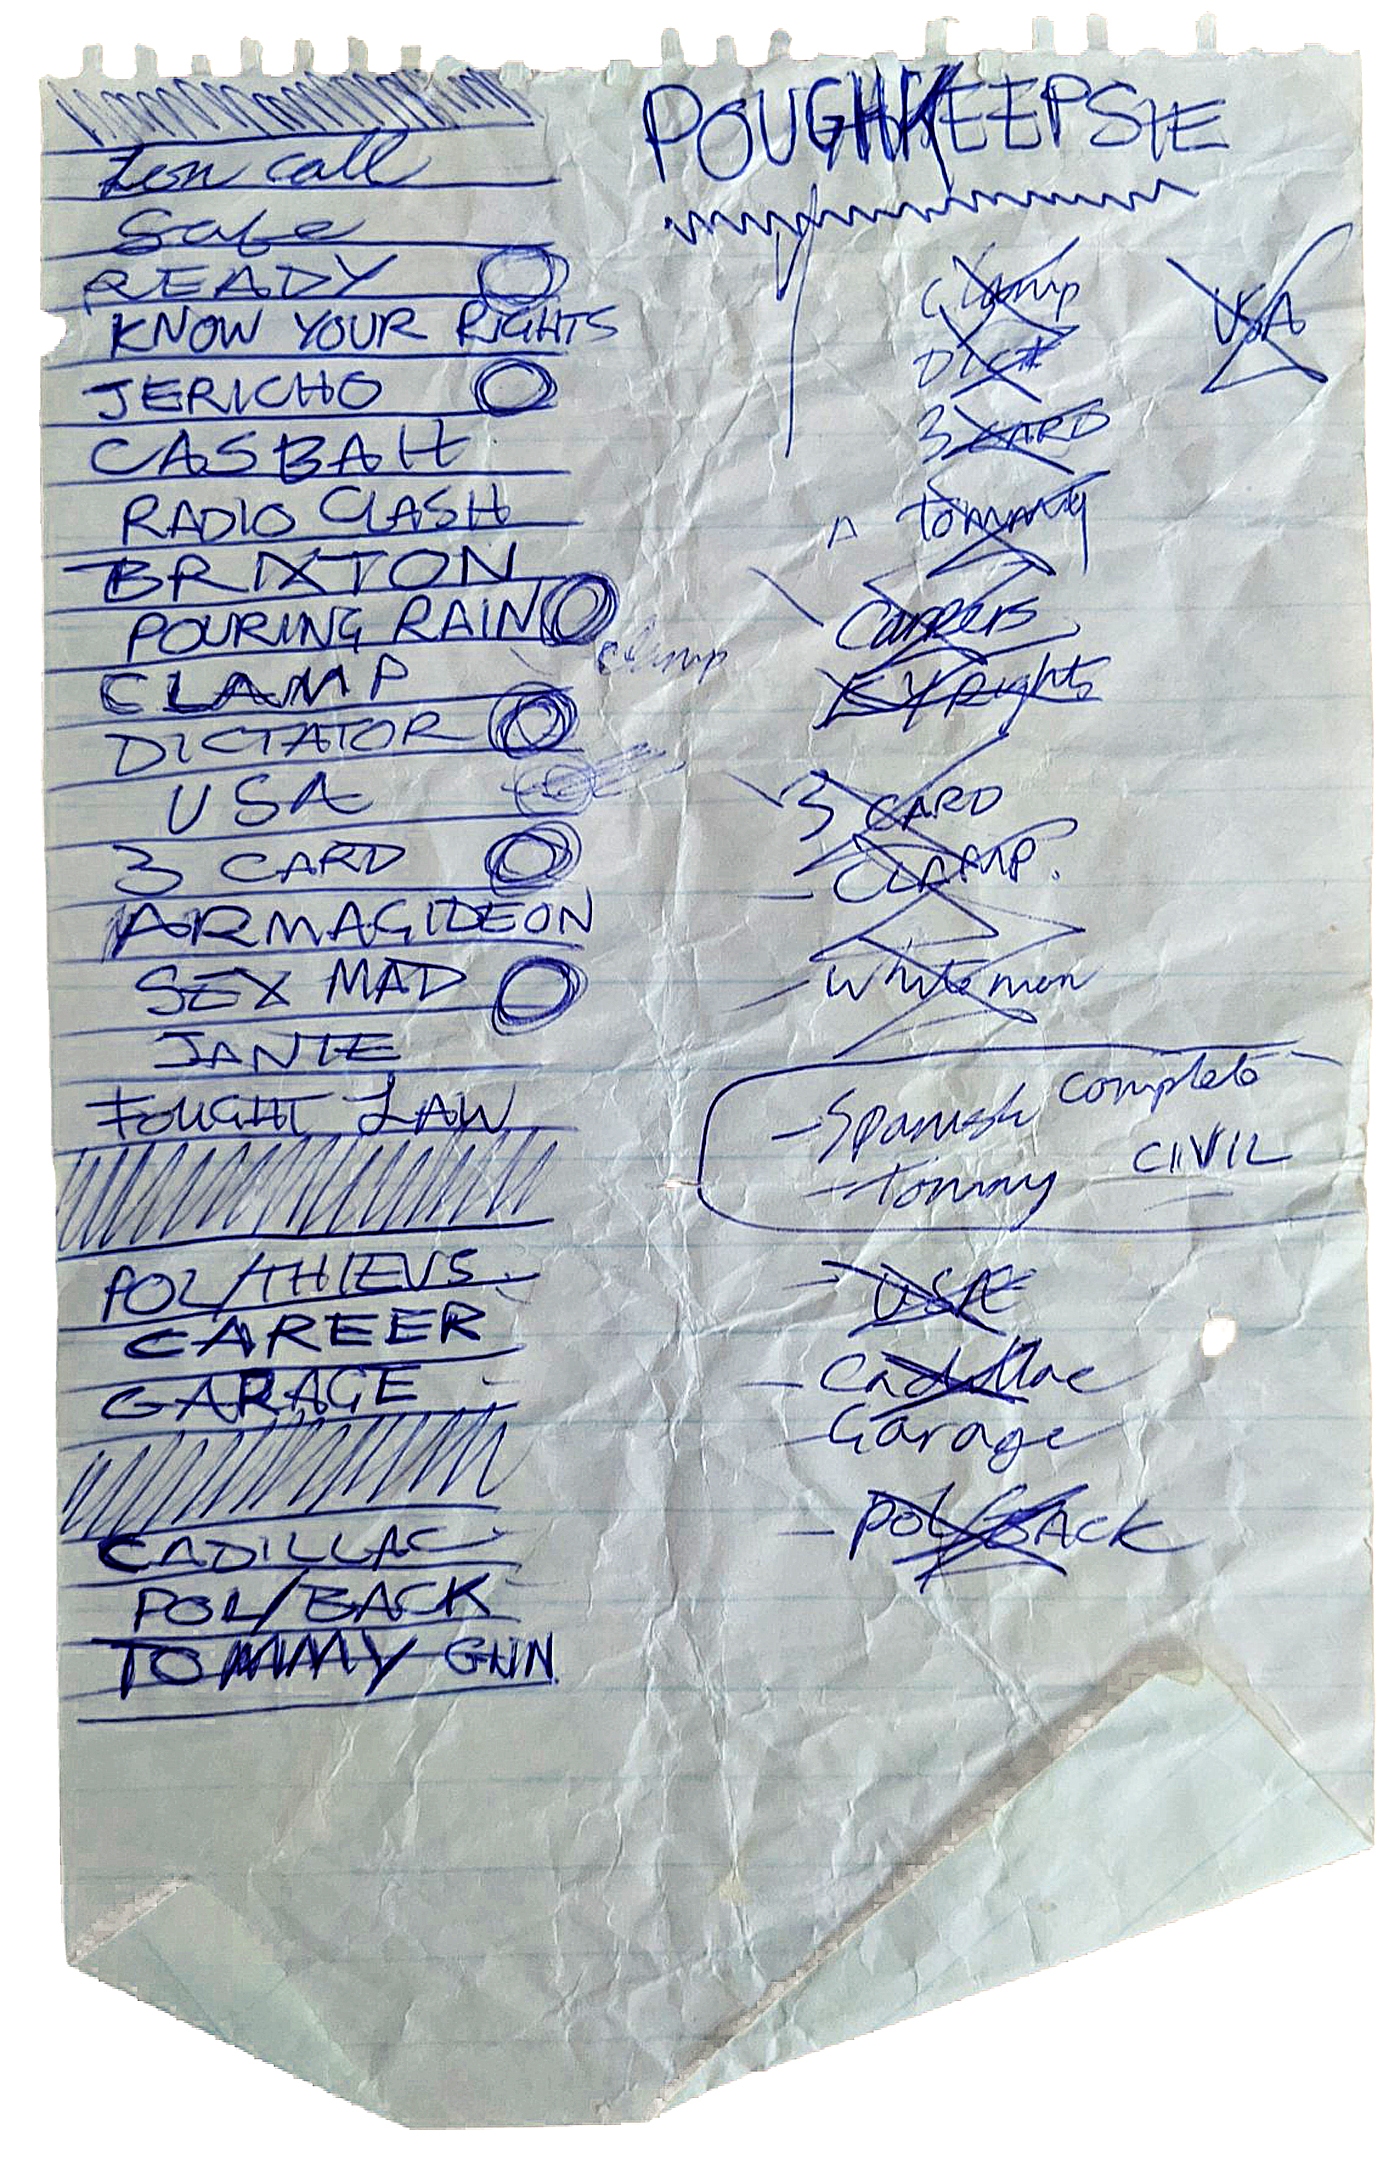 Lon call
Safe
READY
KNOW YOUR RIGHTS
JERICHO
CASBAH
RADIO CLASH
BRIXTON
POURING RAIN
clamp
CLAMP
DICTATOR
USA
3 CARD
ARMAGIDEON
SEX MAD
JANIE
FOUGHT LAW
POL/THIEVS
CAREER
GARAGE
CADILLAC
POL/BACK
TOMMY GUN
POUGHKEEPSIE
clamp
USA
DICT
3 CARD
tommy
Careers
KY Rights
3 CARD
CLAMP.
White man
Spanish complete
tommy CIVIL
USA
Cadillac
Garage
POL/BACK